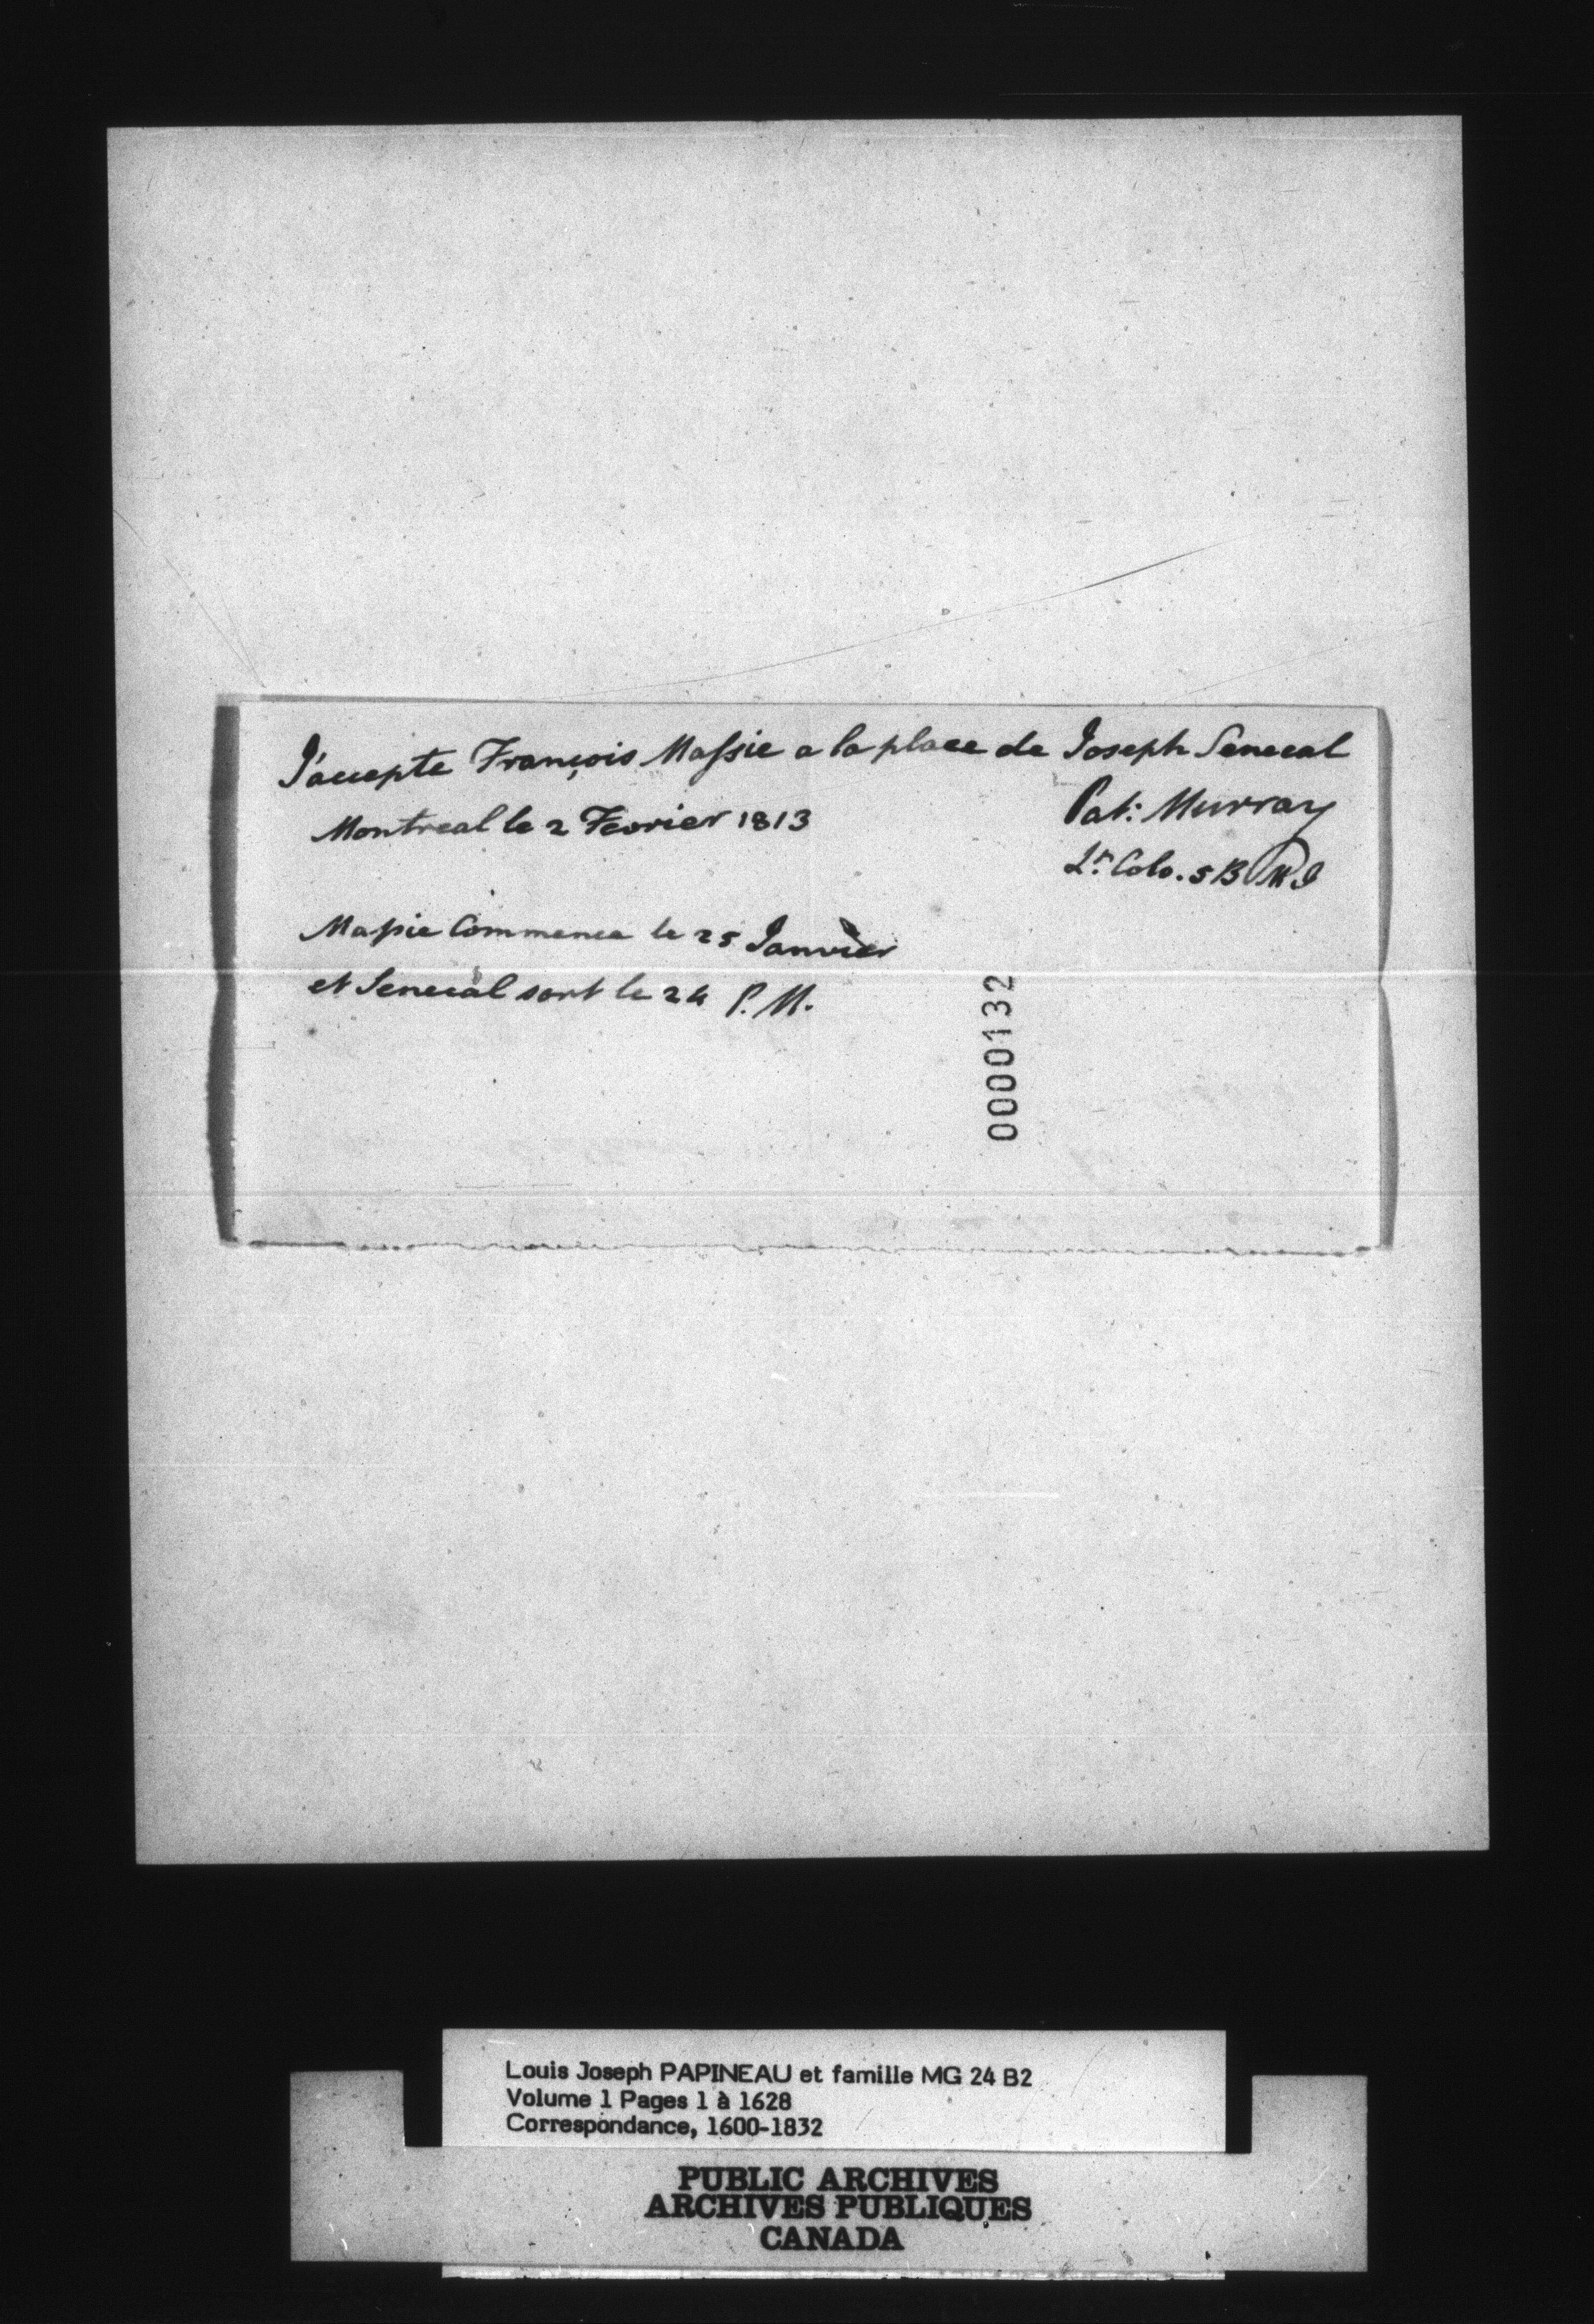 J'accepte François Massie a la place de Joseph Senecal
Montreal le 2 Fevrier 1813
Pat: Murray
Lt. Colo. 5 B M I
Massie Commence le 25 Janvier
et Senecal sort le 24 P. M.
0000132
Louis Joseph PAPINEAU et famille MG 24 B2
Volume 1 Pages 1 à 1628
Correspondance, 1600-1832
PUBLIC ARCHIVES
ARCHIVES PUBLIQUES
CANADA